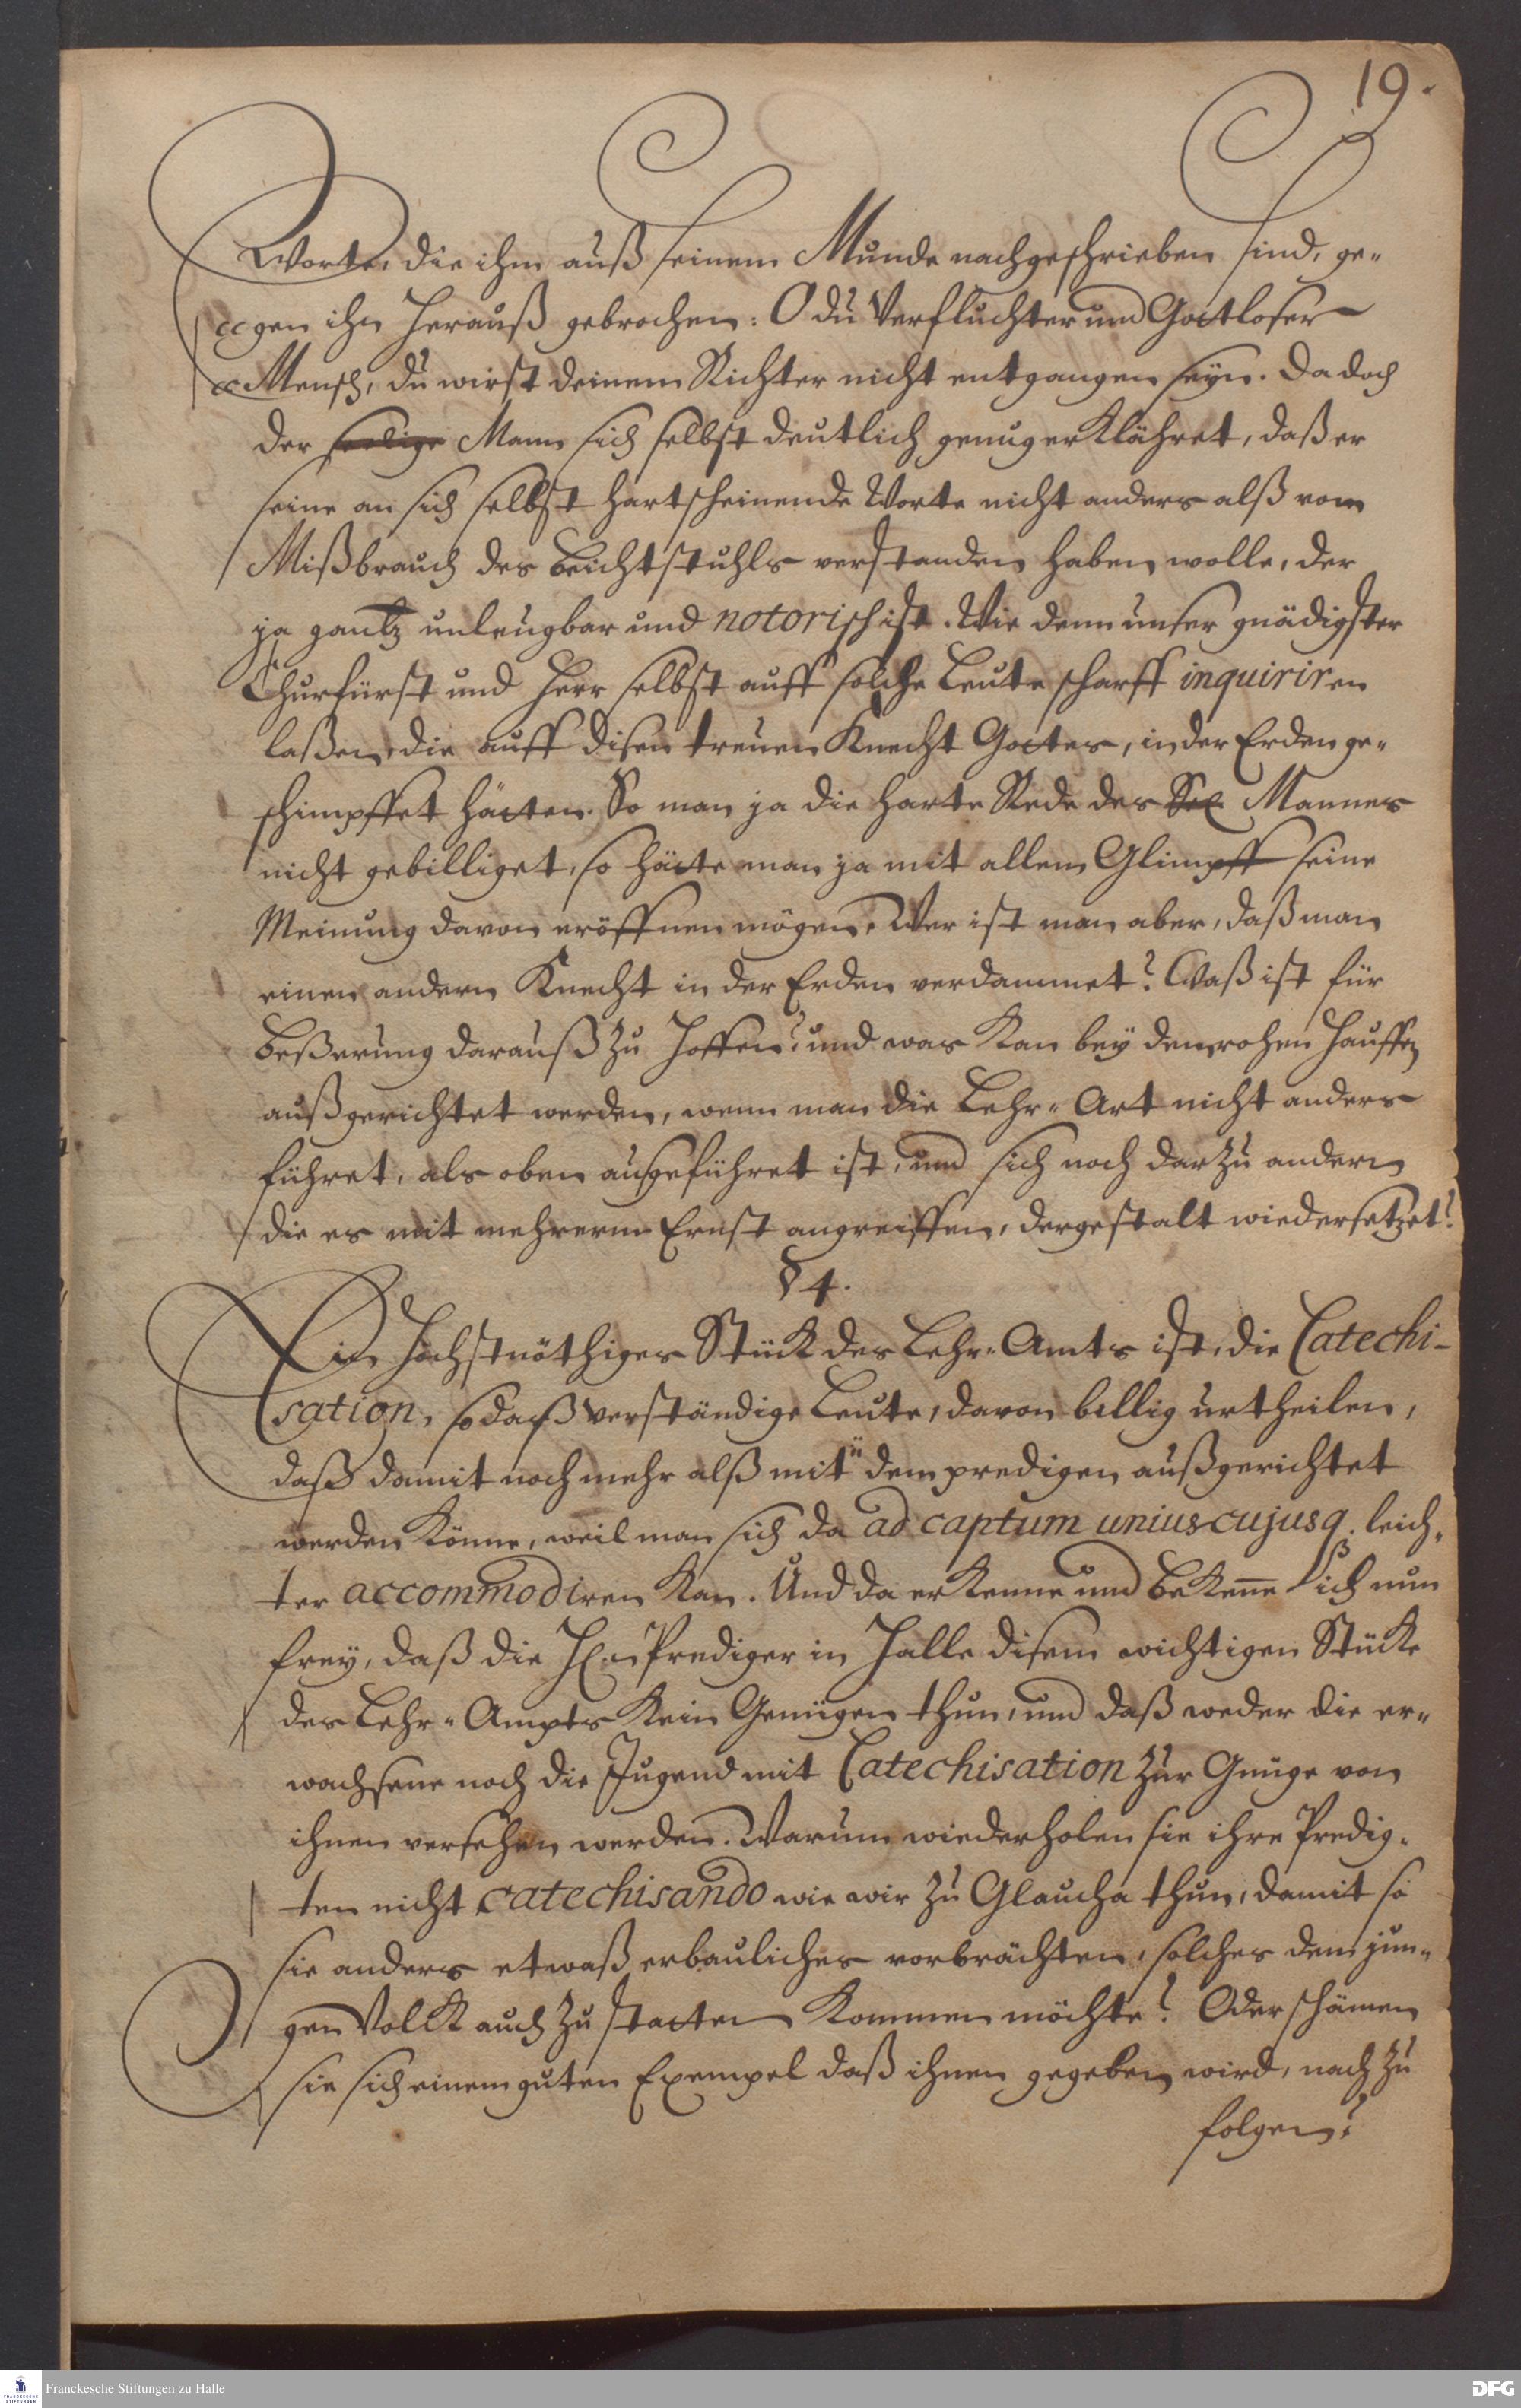 19.
Worte, die ihm auß seinem Munde nachgeschrieben sind, ge-
gen ihn herauß gebrochen: O du Verfluchter und Gottloser
Mensch, du wirst deinem Richter nicht entgangen seyn. Da doch
der seelige Mann sich selbst deutlich genug erklähret, daß er
seine an sich selbst hartscheinende Worte nicht anders alß vom
Mißbrauch des Beichtstuhls verstanden haben wolle, der
ja gantz unleugbar und notorisch ist. Wie denn unser gnädigster
Churfürst und Herr selbst auff solche Leute scharff inquiriren
laßen, die auff disen treuen Knecht Gottes, in der Erden ge-
schimpffet hätten. So man ja die harte Rede des Seel. Mannes
nicht gebilliget, so hätte man ja mit allem Glimpff seine
Meinung davon eröffnen mögen. Wer ist man aber, daß man
einen andern Knecht in der Erden verdammet? Waß ist für
Beßerung darauß zu hoffen? und was kan bey dem rohen Hauffen
außgerichtet werden, wenn man die Lehr-Art nicht anders
führet, als oben ausgeführet ist, und sich noch darzu andern
die es mit mehrerm Ernst angreiffen, dergestalt wiedersetzet?
§ 4.
Ein höchstnöthiges Stück des Lehr-Amts ist, die Catechi-
sation, so daß verständige Leute, davon billig urtheilen,
daß damit noch mehr alß mit dem predigen außgerichtet
werden könne, weil man sich da ad captum uniuscujusq. leich-
ter accommodiren kan. Und da erkenne und bekenne ich nun
frey, daß die H. Prediger in Halle disem wichtigen Stücke
des Lehr-Ampts kein Genügen thun, und daß weder die er-
wachsene noch die Jugend mit Catechisation zur Gnüge von
ihnen versehen werden. Warum wiederholen sie ihre Predig-
ten nicht catechisando wie wir zu Glaucha thun, damit so
sie anders etwaß erbauliches vorbrächten, solches dem jun-
gen Volck auch zu statten kommen möchte? Oder schämen
sie sich einem guten Exempel daß ihnen gegeben wird, nach zu
folgen?
Franckesche Stiftungen zu Halle
DFG